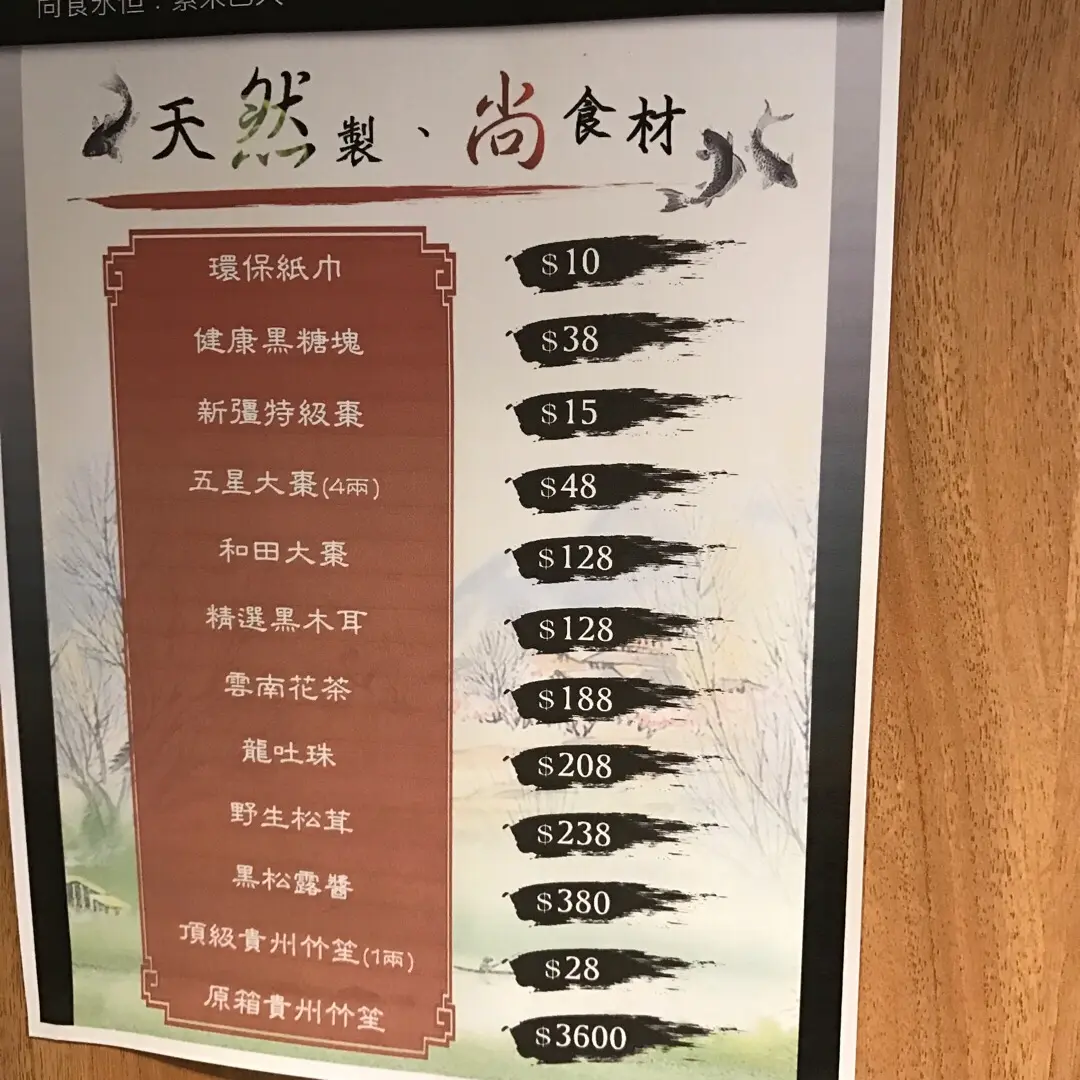 天然製、尚食材
環保紙巾 $10
健康黑糖塊 $38
新彊特級棗 $15
五星大棗(4兩) $48
和田大棗 $128
精選黑木耳 $128
雲南花茶 $188
龍吐珠 $208
野生松茸 $238
黑松露醬 $380
頂級貴州竹笙(1兩) $28
原箱貴州竹笙 $3600